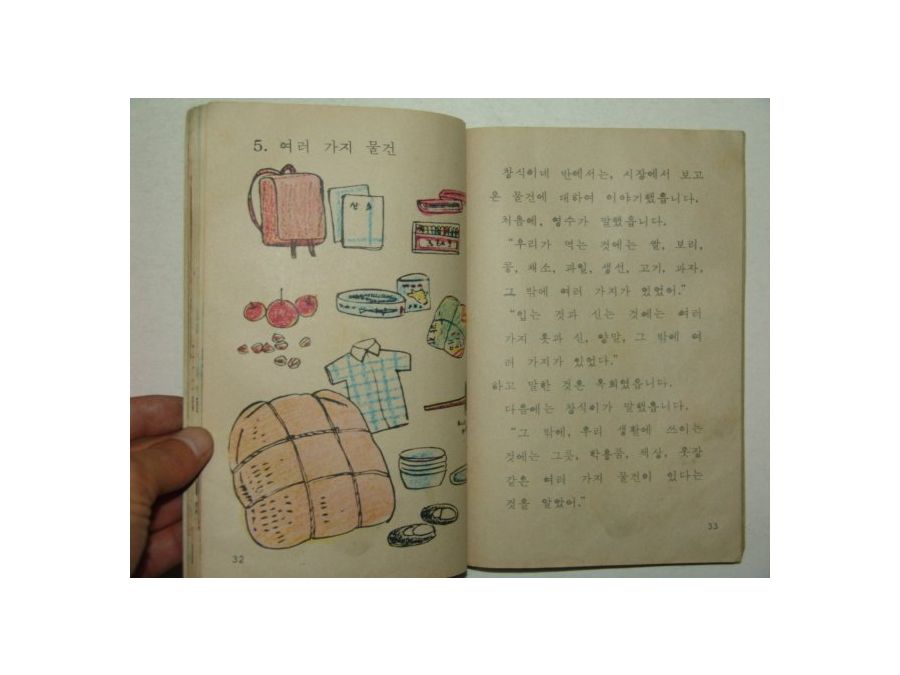 5. 여러 가지 물건
산 호
32
창식이네 반에서는, 시장에서 보고
온 물건에 대하여 이야기했읍니다.
처음에, 영수가 말했읍니다.
"우리가 먹는 것에는 쌀, 보리,
콩, 채소, 과일, 생선, 고기, 과자,
그 밖에 여러 가지가 있었어."
"입는 것과 신는 것에는 여러
가지 옷과 신, 양말, 그 밖에 여
러 가지가 있었다."
하고 말한 것은 옥희였읍니다.
다음에는 창식이가 말했읍니다.
"그 밖에, 우리 생활에 쓰이는
것에는 그릇, 학용품, 책상, 옷장
같은 여러 가지 물건이 있다는
것을 알았어."
33